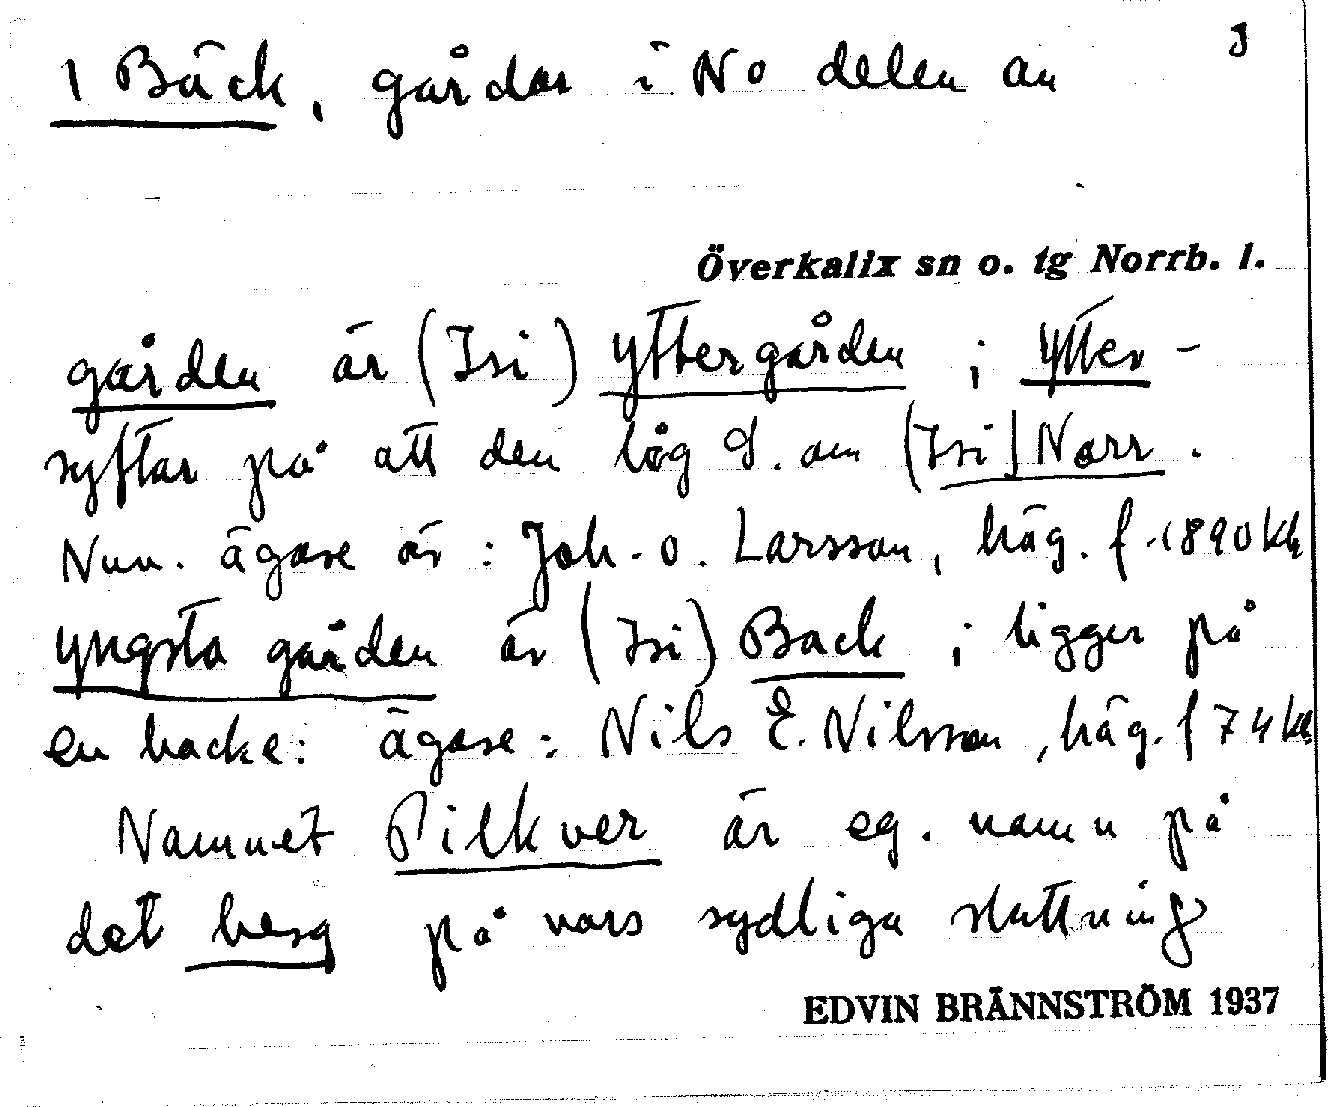 3
1 Bäck, gårdar i No delen av
Överkalix sn o. tg Norrb. l.
gården är (Isi) yttergården ; ytter-
syftar på att den låg S. om (Isi) Narr.
Nuv. ägare är: Joh. O. Larsson, häg. f. 1890 kh
yngsta gården är (Isi) Back ; ligger på
en backe: ägare: Nils E. Nilsson, häg. f 74 kh
Namnet Pilkver är eg. namn på
det berg på vars sydliga sluttning
EDVIN BRÄNNSTRÖM 1937